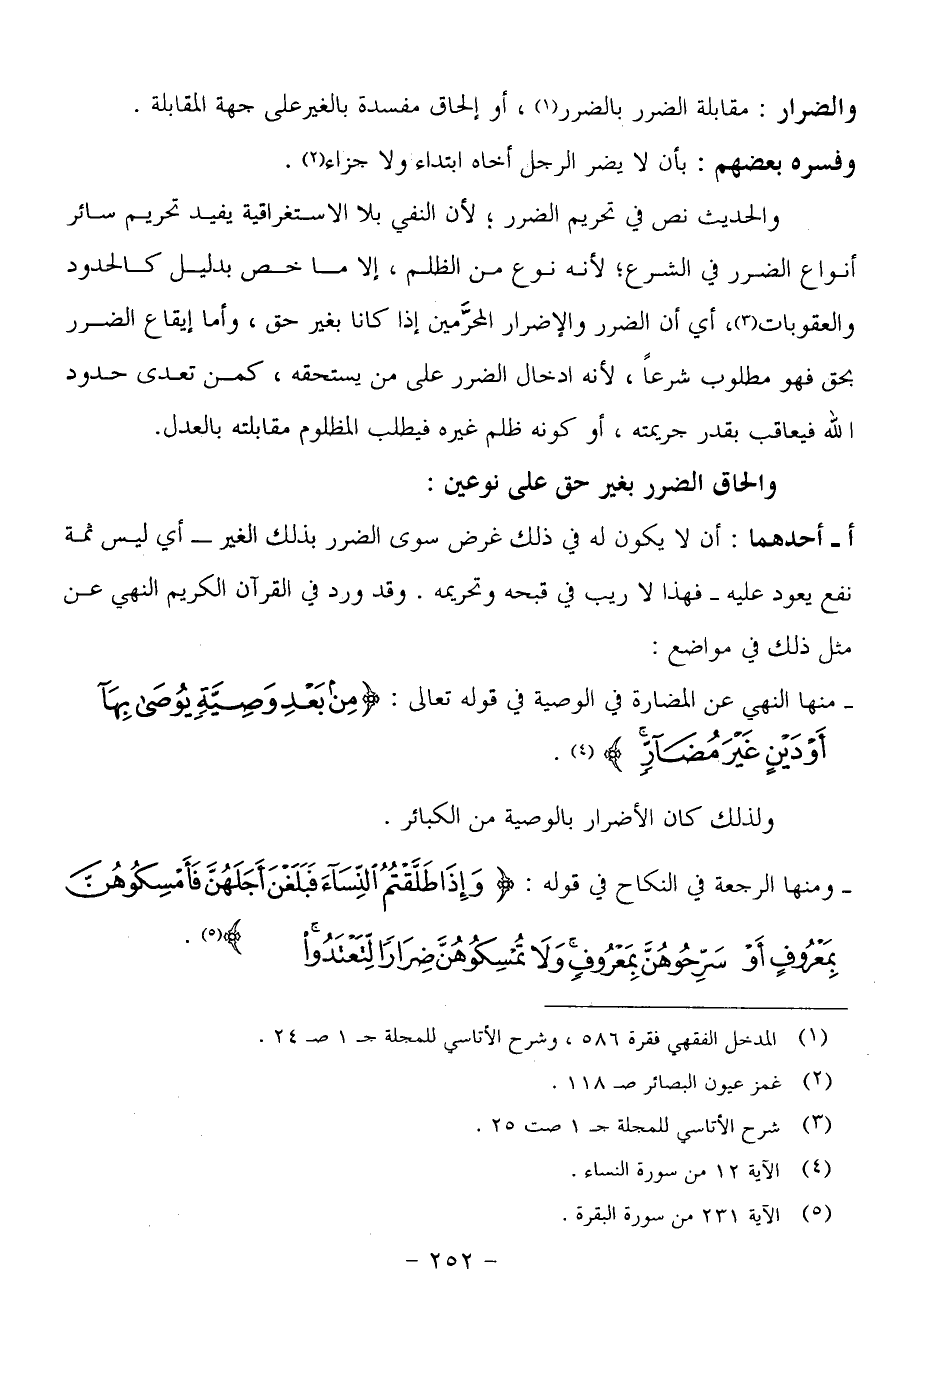 والضرار : مقابلة الضرر بالضرر(١) ، أو إلحاق مفسدة بالغير على جهة المقابلة .
وفسره بعضهم : بأن لا يضر الرجل أخاه ابتداء ولا جزاء(٢) .
والحديث نص في تحريم الضرر ؛ لأن النفي بلا الاستغراقية يفيد تحريم سائر
أنواع الضرر في الشرع؛ لأنه نوع من الظلم ، إلا ما خص بدليل كالحدود
والعقوبات(٣)، أي أن الضرر والإضرار المحرَّمين إذا كانا بغير حق ، وأما إيقاع الضرر
بحق فهو مطلوب شرعاً ، لأنه ادخال الضرر على من يستحقه ، كمن تعدى حدود
الله فيعاقب بقدر جريمته ، أو كونه ظلم غيره فيطلب المظلوم مقابلته بالعدل.
والحاق الضرر بغير حق على نوعين :
أ ـ أحدهما : أن لا يكون له في ذلك غرض سوى الضرر بذلك الغير ــ أي ليس ثمة
نفع يعود عليه ـ فهذا لا ريب في قبحه وتحريمه . وقد ورد في القرآن الكريم النهي عن
مثل ذلك في مواضع :
ـ منها النهي عن المضارة في الوصية في قوله تعالى : ﴿ مِنۢ بَعْدِ وَصِيَّةٍ يُوصَىٰ بِهَآ
أَوْ دَيْنٍ غَيْرَ مُضَآرٍّ ۚ ﴾ (٤) .
ولذلك كان الأضرار بالوصية من الكبائر .
ـ ومنها الرجعة في النكاح في قوله : ﴿ وَإِذَا طَلَّقْتُمُ ٱلنِّسَآءَ فَبَلَغْنَ أَجَلَهُنَّ فَأَمْسِكُوهُنَّ
بِمَعْرُوفٍ أَوْ سَرِّحُوهُنَّ بِمَعْرُوفٍ ۚ وَلَا تُمْسِكُوهُنَّ ضِرَارًا لِّتَعْتَدُوا۟ ۚ ﴾(٥) .
(١) المدخل الفقهي فقرة ٥٨٦ ، وشرح الأتاسي للمجلة جـ ١ صـ ٢٤ .
(٢) غمز عيون البصائر صـ ١١٨ .
(٣) شرح الأتاسي للمجلة جـ ١ صت ٢٥ .
(٤) الآية ١٢ من سورة النساء .
(٥) الآية ٢٣١ من سورة البقرة .
- ٢٥٢ -